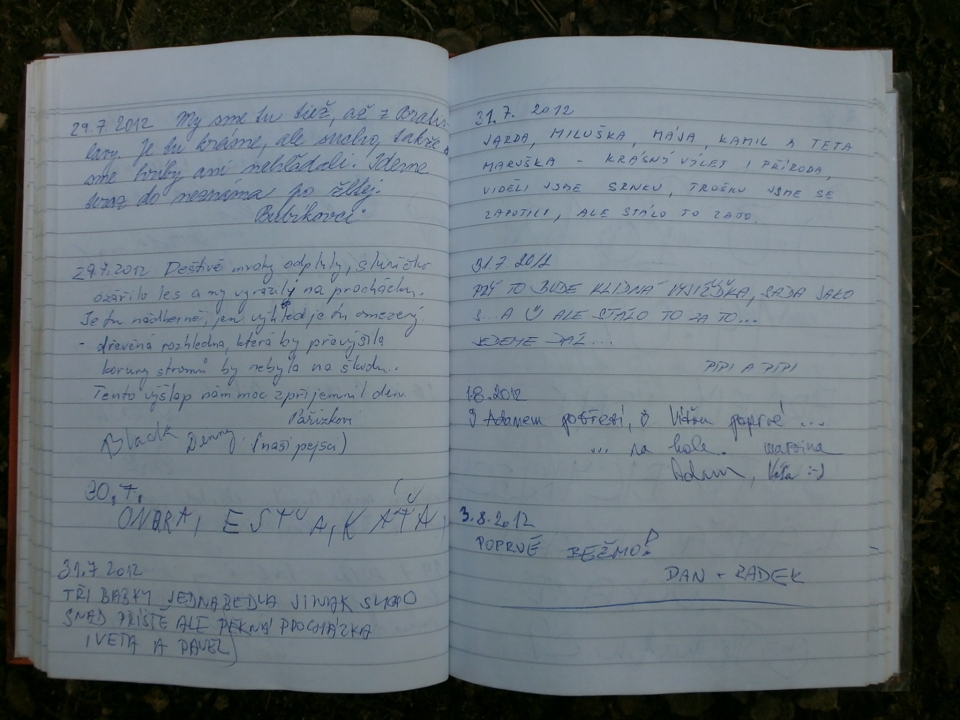 29.7.2012 My sme tu tiež, až z Bratis-
lavy. Je tu krásne, ale sucho, takže
sme hríby ani nehľadali. Ideme
teraz do neznáma po žltej.
Bubákovci.
29.7.2012 Deštivé mraky odpluly, sluníčko
ozářilo les a my vyrazili na procházku.
Je tu nádherně, jen výhled je tu omezený
- dřevěná rozhledna, která by převýšila
koruny stromů by nebyla na škodu...
Tento výšlap nám moc zpříjemnil den.
Pařízkovi
Black Denny (naši pejsci)
30.7.
ONDRA, ESTU A, KÁŤA,
31.7 2012
TŘI BABKY JEDNA BEDLA JINAK SUCHO
SNAD PŘÍŠTĚ ALE PĚKNÁ PROCHÁZKA
IVETA A PAVEL
31.7. 2012
JARDA, MILUŠKA, MÁJA, KAMIL A TETA
MARUŠKA - KRÁSNÝ VÝLET I PŘÍRODA,
VIDĚLI JSME SRNKU, TROŠKU JSME SE
ZAPOTILI, ALE STÁLO TO ZATO.
31.7 2012
PRÝ TO BUDE KLIDNÁ VYJÍŽĎKA, JAKO
S...A ALE STÁLO TO ZA TO...
JEDEME DÁL...
PIPI A PIPI
1.8.2012
S Adamem potřetí, s Víťou poprvé ...
... na kole.
Adam, Víťa :-)
3.8.2012
POPRVÉ BĚŽMO!
DAN + RADEK